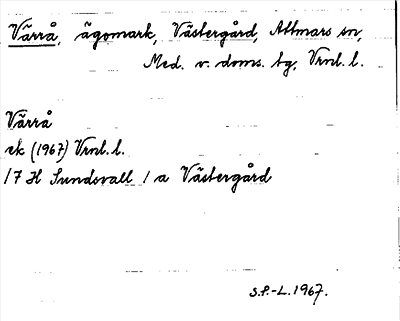 Värrå, ägomark, Västergård, Attmars sn,
Med. v. doms. tg, Vrnl. l.
Värrå
ek (1967) Vrnl. l.
17 H Sundsvall 1 a Västergård
S.F.-L. 1967.